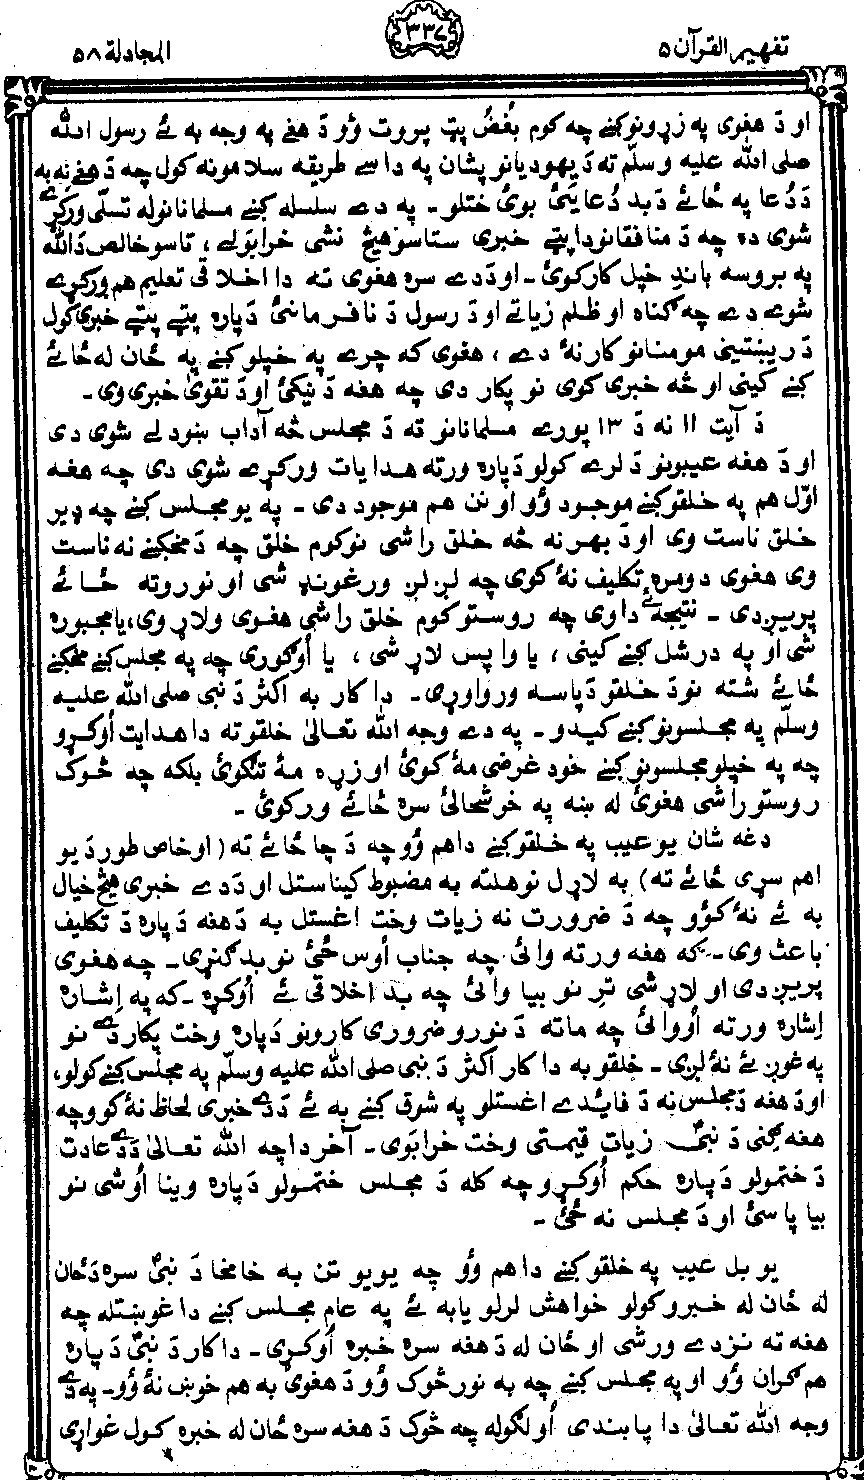 تفهيم القرآن ۵
۳۳۷
المجادلة ۵۸
او دَ هغوی په زړونو کښے چه کوم بُغض پټ پروت وُو دَ هغے په وجه به ئے رسول الله
صلی الله علیه وسلّم ته دَ یهودیانو پشان په داسے طریقه سلامونه کول چه دَ هغے نه به
دَ دُعا په ځائے دَ بد دُعایئی بوئ ختلو ـ په دے سلسله کښے مسلمانانو له تسلّی ورکړے
شوی ده چه دَ منافقانو دا پټے خبری ستاسو هیڅ نشی خرابولے ، تاسو خالص دَ الله
په بروسه باندِ خپل کار کوئ ـ او دَ دے سره هغوی ته دا اخلاقی تعلیم هم ورکړے
شوے دے چه گناه او ظلم زیاتے او دَ رسول دَ نافرمانئ دَ پاره پټے پټے خبری کول
دَ رښتینی مومنانو کار نهٔ دے ، هغوی که چرے په خپلو کښے په ځان له ځائے
کښے کینی او څه خبری کوی نو پکار دی چه هغه دَ نیکئ او دَ تقویٰ خبری وی ـ
دَ آیت ۱۱ نه دَ ۱۳ پورے مسلمانانو ته دَ مجلس څه آداب ښودلے شوی دی
او دَ هغه عیبونو دَ لرے کولو دَ پاره ورته هدایات ورکړے شوی دی چه هغه
اوّل هم په خلقو کښے موجود وُو او نن هم موجود دی ـ په یو مجلس کښے چه ډیر
خلق ناست وی او دَ بهر نه څه خلق راشی نو کوم خلق چه دَ مخکښے نه ناست
وی هغوی دومره تکلیف نهٔ کوی چه لږ لږ ورغونډ شی او نورو ته ځائے
پریږدی ـ نتیجه ئے دا وی چه روستو کوم خلق راشی هغوی ولاړ وی، یا مجبوره
شی او په درشل کښے کینی ، یا واپس لاړ شی ، یا اُوگوری چه په مجلس کښے مخکښے
ځائے شته نو دَ خلقو دَ پاسه ورواوړی ـ دا کار به اکثر دَ نبی صلی الله علیه
وسلّم په مجلسونو کښے کیدو ـ په دے وجه الله تعالیٰ خلقو ته دا هدایت اُوکړو
چه په خپلو مجلسونو کښے خود غرضی مهٔ کوئ او زړه مهٔ تنگوئ بلکه چه څوک
روستو راشی هغوئ له ښه په خوشحالئ سره ځائے ورکوئ ـ
دغه شان یو عیب په خلقو کښے دا هم وُو چه دَ چا ځائے ته (او خاص طور دَ یو
اهم سړی ځائے ته) به لاړل نو هلته به مضبوط کیناستل او دَ دے خبری هیڅ خیال
به ئے نهٔ کوُو چه دَ ضرورت نه زیات وخت اغستل به دَ هغه دَ پاره دَ تکلیف
باعث وی ـ که هغه ورته وائی چه جناب اُوس ځئ نو بد گنړی ـ چه هغوی
پریږدی او لاړ شی ترِ نو بیا وائی چه بد اخلاقی ئے اُوکړه ـ که په اِشاره
اِشاره ورته اُووائی چه ما ته دَ نورو ضروری کارونو دَ پاره وخت پکار دے نو
په غوږ ئے نهٔ لږی ـ خلقو به دا کار اکثر دَ نبی صلی الله علیه وسلّم په مجلس کښے کولو،
او دَ هغه دَ مجلس نه دَ فائیدے اغستلو په شوق کښے به ئے دَ دے خبری لحاظ نهٔ کوو چه
هغه گنی دَ نبیؐ زیات قیمتی وخت خرابوی ـ آخر دا چه الله تعالیٰ دَ دے عادت
دَ ختمولو دَ پاره حکم اُوکړو چه کله دَ مجلس ختمولو دَ پاره وینا اُوشی نو
بیا پاسئ او دَ مجلس نه ځئ ـ
یو بل عیب په خلقو کښے دا هم وُو چه یو یو تن به خامخا دَ نبیؐ سره دَ ځان
له ځان له خبرو کولو خواهش لرلو یا به ئے په عام مجلس کښے دا غوښتله چه
هغه ته نزدے ورشی او ځان له دَ هغه سره خبره اُوکړی ـ دا کار دَ نبیؐ دَ پاره
هم گران وُو او په مجلس کښے چه به نور څوک وُو دَ هغوی به هم خوښ نهٔ وُو ـ په دے
وجه الله تعالیٰ دا پابندی اُولگوله چه څوک دَ هغه سره ځان له خبره کول غواړی